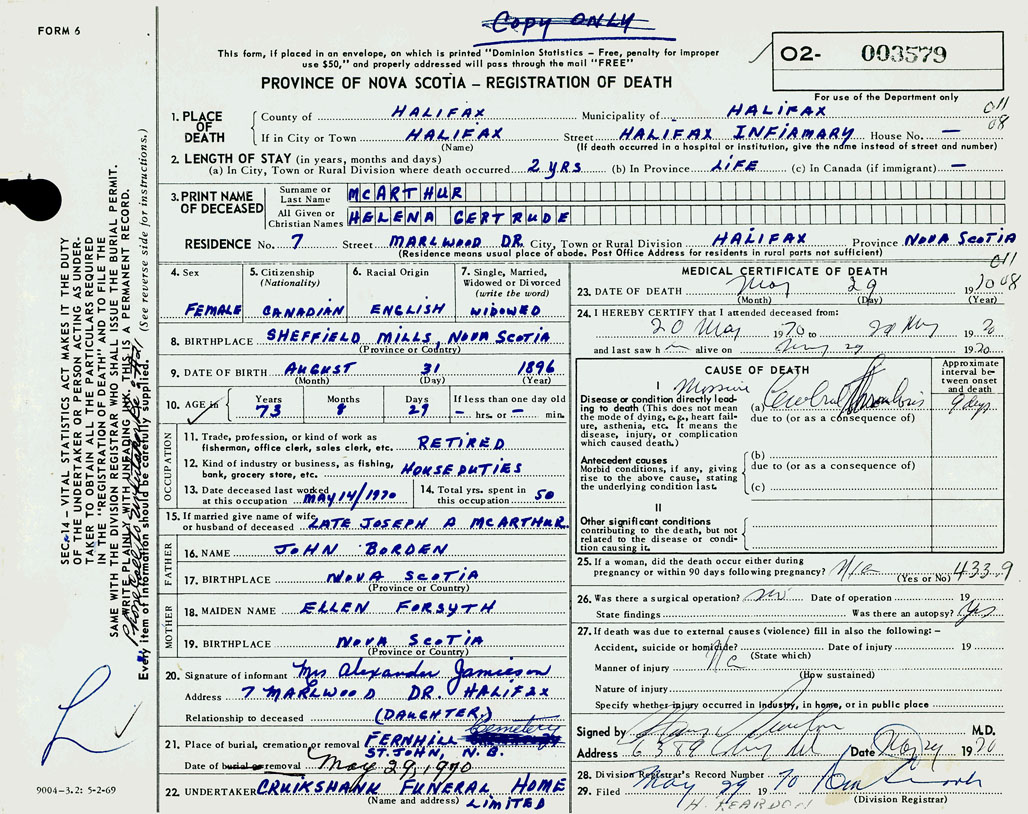 COPY ONLY
FORM 6
This form, if placed in an envelope, on which is printed "Dominion Statistics – Free, penalty for improper
use $50," and properly addressed will pass through the mail "FREE"
PROVINCE OF NOVA SCOTIA – REGISTRATION OF DEATH
O2- 003579
For use of the Department only
011
08
1. PLACE OF DEATH
County of HALIFAX Municipality of HALIFAX
If in City or Town HALIFAX Street HALIFAX INFIAMARY House No. —
(Name) (If death occurred in a hospital or institution, give the name instead of street and number)
2. LENGTH OF STAY (in years, months and days)
(a) In City, Town or Rural Division where death occurred 2 YRS (b) In Province LIFE (c) In Canada (if immigrant) —
3. PRINT NAME OF DECEASED
Surname or Last Name MCARTHUR
All Given or Christian Names HELENA GERTRUDE
RESIDENCE No. 7 Street MARLWOOD DR. City, Town or Rural Division HALIFAX Province NOVA SCOTIA
(Residence means usual place of abode. Post Office Address for residents in rural parts not sufficient)
011
08
4. Sex FEMALE
5. Citizenship (Nationality) CANADIAN
6. Racial Origin ENGLISH
7. Single, Married, Widowed or Divorced (write the word) WIDOWED
8. BIRTHPLACE SHEFFIELD MILLS, NOVA SCOTIA
(Province or Country)
9. DATE OF BIRTH AUGUST 31 1896
(Month) (Day) (Year)
10. AGE in Years 73 Months 8 Days 29 If less than one day old — hrs. or — min.
OCCUPATION
11. Trade, profession, or kind of work as
fisherman, office clerk, sales clerk, etc. RETIRED
12. Kind of industry or business, as fishing,
bank, grocery store, etc. HOUSE DUTIES
13. Date deceased last worked
at this occupation MAY 14/1970
14. Total yrs. spent in
this occupation 50
15. If married give name of wife
or husband of deceased LATE JOSEPH A MCARTHUR
FATHER
16. NAME JOHN BORDEN
17. BIRTHPLACE NOVA SCOTIA
(Province or Country)
MOTHER
18. MAIDEN NAME ELLEN FORSYTH
19. BIRTHPLACE NOVA SCOTIA
(Province or Country)
20. Signature of informant Mrs Alexander Jamieson
Address 7 MARLWOOD DR. HALIFAX
Relationship to deceased (DAUGHTER)
21. Place of burial, cremation or removal FERNHILL Cemetery
ST. JOHN, N.B.
Date of burial or removal May 29, 1970
22. UNDERTAKER CRUIKSHANK FUNERAL HOME
(Name and address) LIMITED
MEDICAL CERTIFICATE OF DEATH
23. DATE OF DEATH May 29 1970
(Month) (Day) (Year)
24. I HEREBY CERTIFY that I attended deceased from:
20 May 1970 to 29 May 1970
and last saw h alive on May 29 1970
CAUSE OF DEATH
Approximate interval between onset and death
I
Disease or condition directly leading to death (This does not mean the mode of dying, e.g., heart failure, asthenia, etc. It means the disease, injury, or complication which caused death.)
Massive
(a) Cerebral Thrombosis 9 days
due to (or as a consequence of)
Antecedent causes
Morbid conditions, if any, giving rise to the above cause, stating the underlying condition last.
(b)
due to (or as a consequence of)
(c)
II
Other significant conditions
contributing to the death, but not related to the disease or condition causing it.
25. If a woman, did the death occur either during
pregnancy or within 90 days following pregnancy? N/a (Yes or No) 433.9
26. Was there a surgical operation? no Date of operation 19
State findings Was there an autopsy? Yes
27. If death was due to external causes (violence) fill in also the following: –
Accident, suicide or homicide? N/a Date of injury 19
(State which)
Manner of injury
(How sustained)
Nature of injury
Specify whether injury occurred in industry, in home, or in public place
Signed by M.D.
Address 6389 Date May 29 1970
28. Division Registrar's Record Number
29. Filed May 29 1970
(Division Registrar)
H. REARDON
SEC. 14 – VITAL STATISTICS ACT MAKES IT THE DUTY
OF THE UNDERTAKER OR PERSON ACTING AS UNDER-
TAKER TO OBTAIN ALL THE PARTICULARS REQUIRED
IN THE "REGISTRATION OF DEATH" AND TO FILE THE
SAME WITH THE DIVISION REGISTRAR WHO SHALL ISSUE THE BURIAL PERMIT.
WRITE PLAINLY WITH UNFADING INK. THIS IS A PERMANENT RECORD.
Every item of information should be carefully supplied. (See reverse side for instructions.)
9004-3.2: 5-2-69